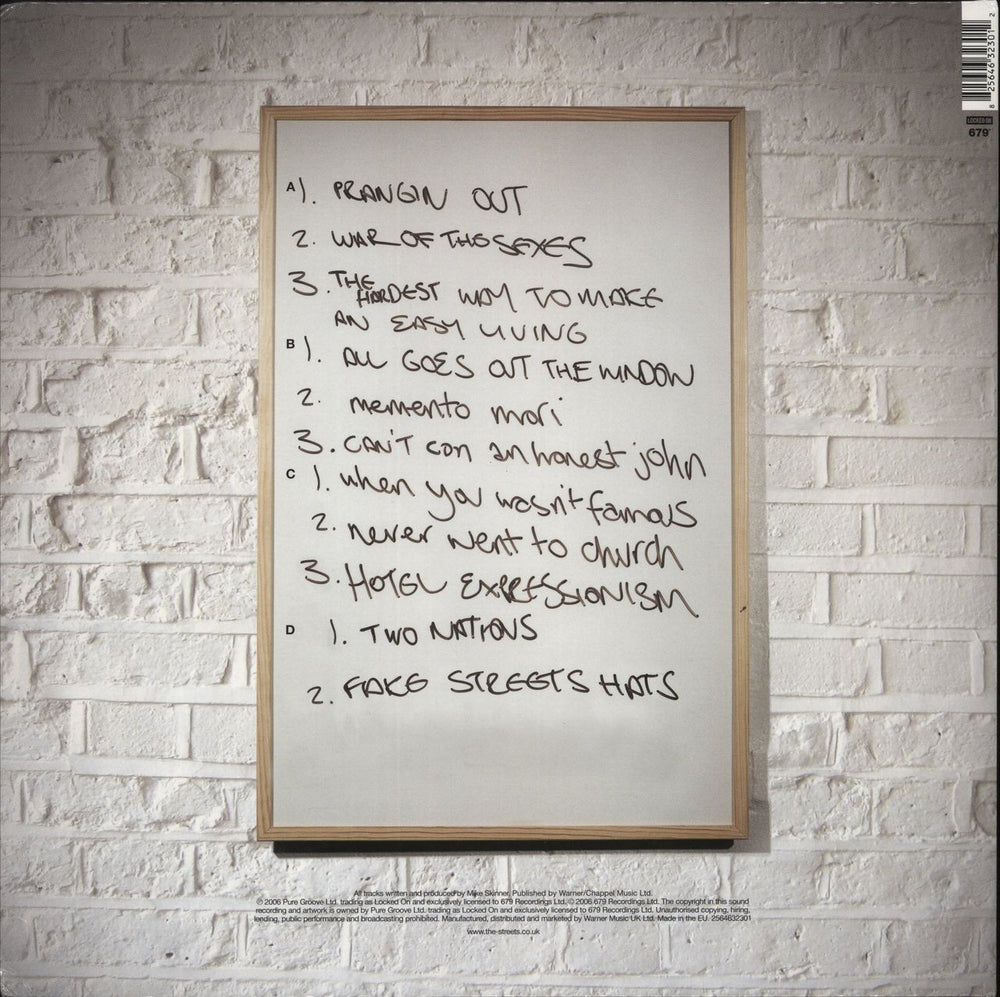 A 1. PRANGIN OUT
2. WAR OF THE SEXES
3. THE HARDEST WAY TO MAKE
AN EASY LIVING
B 1. ALL GOES OUT THE WINDOW
2. memento mori
3. CAN'T con an honest john
C 1. when you wasn't famous
2. never went to church
3. HOTEL EXPRESSIONISM
D 1. TWO NATIONS
2. FAKE STREETS HATS
8 25646 32301 2
LOCKED ON
679
All tracks written and produced by Mike Skinner, Published by Warner/Chappel Music Ltd.
℗ 2006 Pure Groove Ltd. trading as Locked On and exclusively licensed to 679 Recordings Ltd. © 2006 679 Recordings Ltd. The copyright in this sound
recording and artwork is owned by Pure Groove Ltd. trading as Locked On and exclusively licensed to 679 Recordings Ltd. Unauthorised copying, hiring,
lending, public performance and broadcasting prohibited. Manufactured, distributed and marketed by Warner Music UK Ltd. Made in the EU. 2564632301
www.the-streets.co.uk